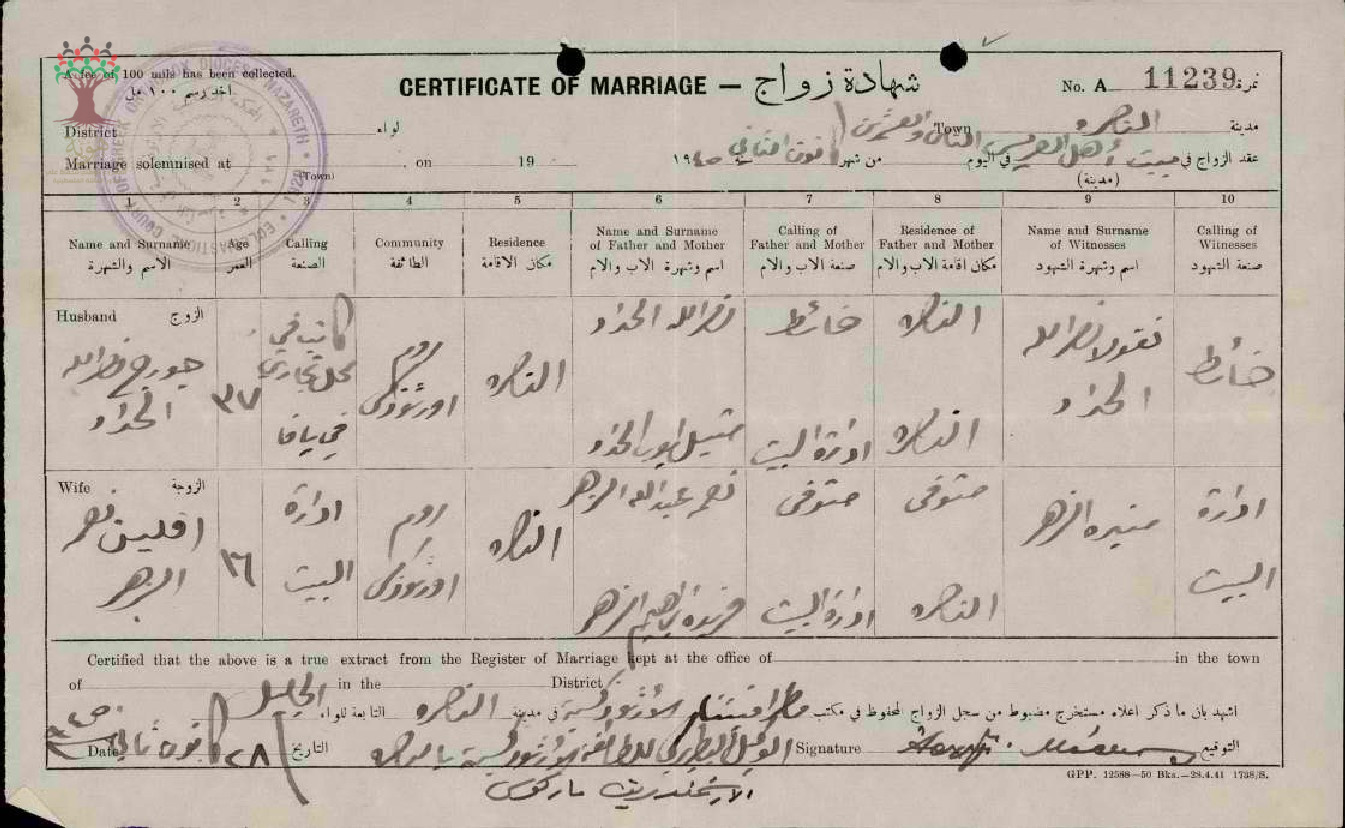 A fee of 100 mils has been collected.
أخذ رسم ١٠٠ مل
CERTIFICATE OF MARRIAGE — شهادة زواج
No. A 11239 نمرة
COURT OF GREEK ORTHODOX DIOCESE NAZARETH ECCLESIASTICAL
District لواء Town الناصره مدينة
Marriage solemnised at (Town) on 19
عقد الزواج في بيت أهل العريس في اليوم الثامن والعشرين من شهر كانون الثاني ١٩٤٥
(مدينة)
1 2 3 4 5 6 7 8 9 10
Name and Surname الاسم والشهرة
Age العمر
Calling الصنعة
Community الطائفة
Residence مكان الاقامة
Name and Surname of Father and Mother اسم وشهرة الاب والام
Calling of Father and Mother صنعة الاب والام
Residence of Father and Mother مكان اقامة الاب والام
Name and Surname of Witnesses اسم وشهرة الشهود
Calling of Witnesses صنعة الشهود
Husband الزوج
جورج نصرالله الحداد
٣٧
كاتب في محل تجاري في يافا
روم اورثوذكس
الناصره
نصرالله الحداد
خائط
الناصره
نقولا نصرالله الحداد
خائط
ايوب الحداد
ادارة البيت
الناصره
Wife الزوجة
افلين نصر الزهر
٣٦
ادارة البيت
روم اورثوذكس
الناصره
نصر عبدالله الزهر
متوفى
متوفى
منيره الزهر
ادارة البيت
فريده ابراهيم الزهر
ادارة البيت
الناصره
Certified that the above is a true extract from the Register of Marriage kept at the office of in the town
of in the District
اشهد بان ما ذكر اعلاه مستخرج مضبوط من سجل الزواج المحفوظ في مكتب الأرثوذكسية في مدينة الناصره التابعة للواء الجليل
Date التاريخ ٢٨ كانون ثاني ١٩٤٥
Signature التوقيع
الوكيل البطريركي للطائفة الأرثوذكسية بالناصره
الارشمندريت ماركوس
GPP. 12588—50 Bks.—28.4.41 1738/S.